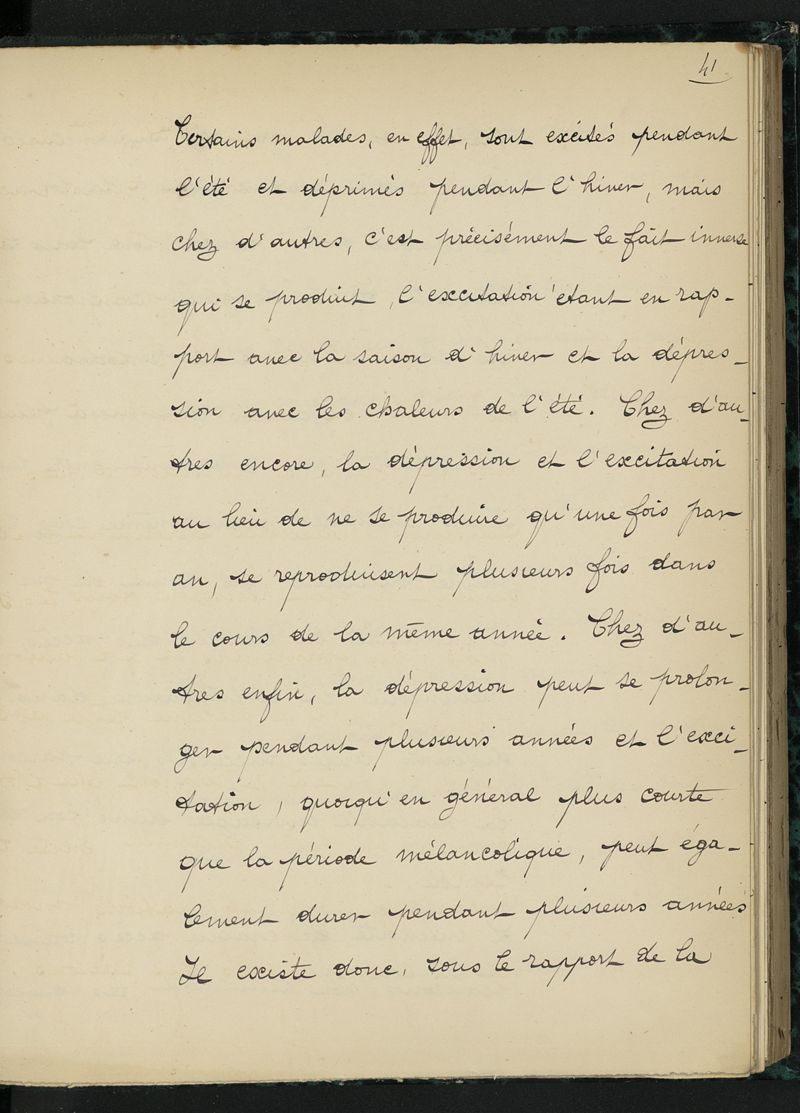 41
Certains malades, en effet, sont excités pendant
l'été et déprimés pendant l'hiver, mais
chez d'autres, c'est précisément le fait inverse
qui se produit, l'excitation étant en rap-
port avec la saison d'hiver et la dépres-
sion avec les chaleurs de l'été. Chez d'au-
tres encore, la dépression et l'excitation
au lieu de ne se produire qu'une fois par
an, se reproduisent plusieurs fois dans
le cours de la même année. Chez d'au-
tres enfin, la dépression peut se prolon-
ger pendant plusieurs années et l'exci-
tation, quoiqu'en général plus courte
que la période mélancolique, peut éga-
lement durer pendant plusieurs années
Il existe donc, sous le rapport de la